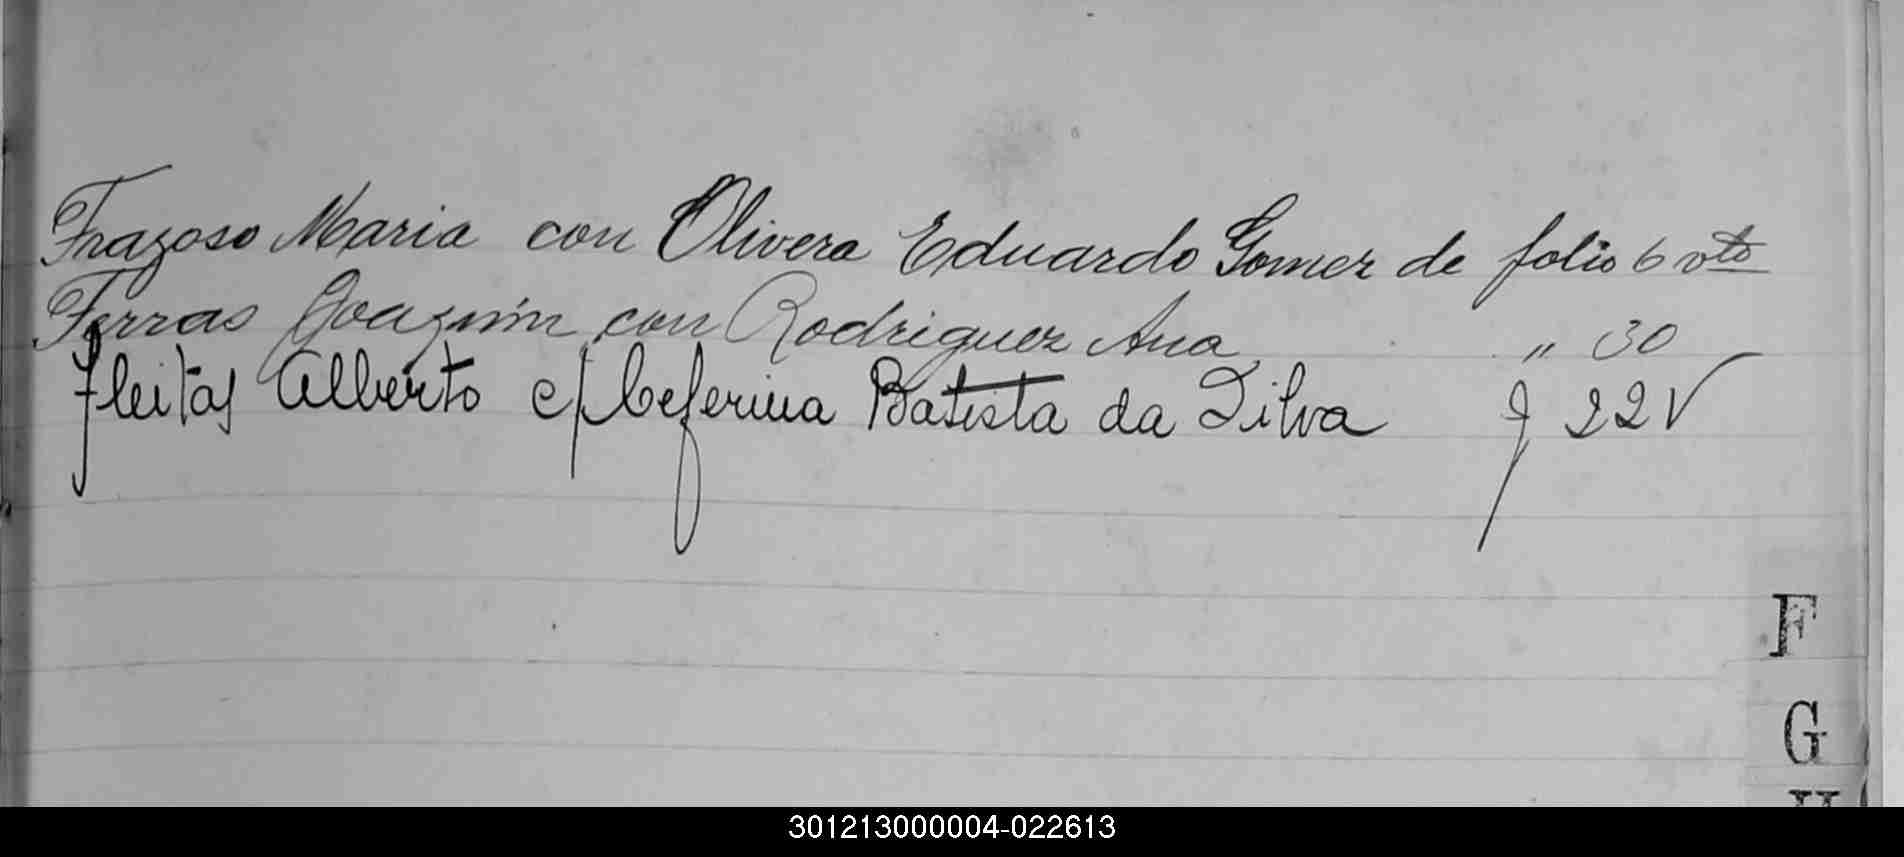 Frazoso Maria con Olivera Eduardo Gomez de folio 6 vto
Ferras Joaquin con Rodriguez Ana " 30
Fleitas Alberto c/ Ceferina Batista da Silva f 22 V
F
G
H
301213000004-022613